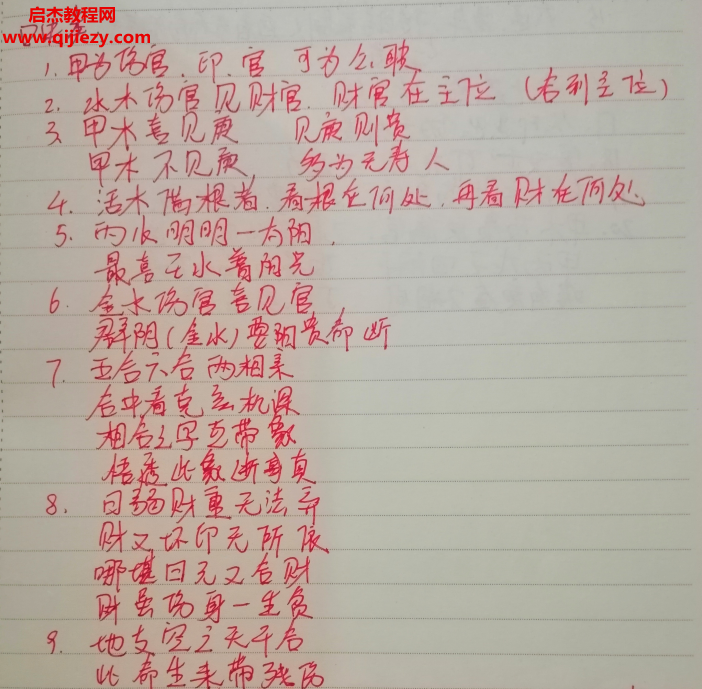 启杰教程网
www.qijiezy.com
口诀
1. 甲为伤官、印、官 可为公职
2. 水木伤官见财官、财官在主位（看到主位）
3、甲木喜见庚 见庚则贵
甲木不见庚， 多为无寿人
4. 活木湿根者、看根在何处、再看财在何处、
5. 丙火明明一太阳，
最喜壬水普阳光
6. 金水伤官喜见官，
群阴（金水）要阳贵命断
7. 五合六合两相亲
合中看克玄机深
相合之字克带象
悟透此象断事真
8. 日弱财重无法弃
财又坏印无所依
哪堪日元又合财
财多伤身一生负
9. 地支空亡天干合
此命生来带残伤